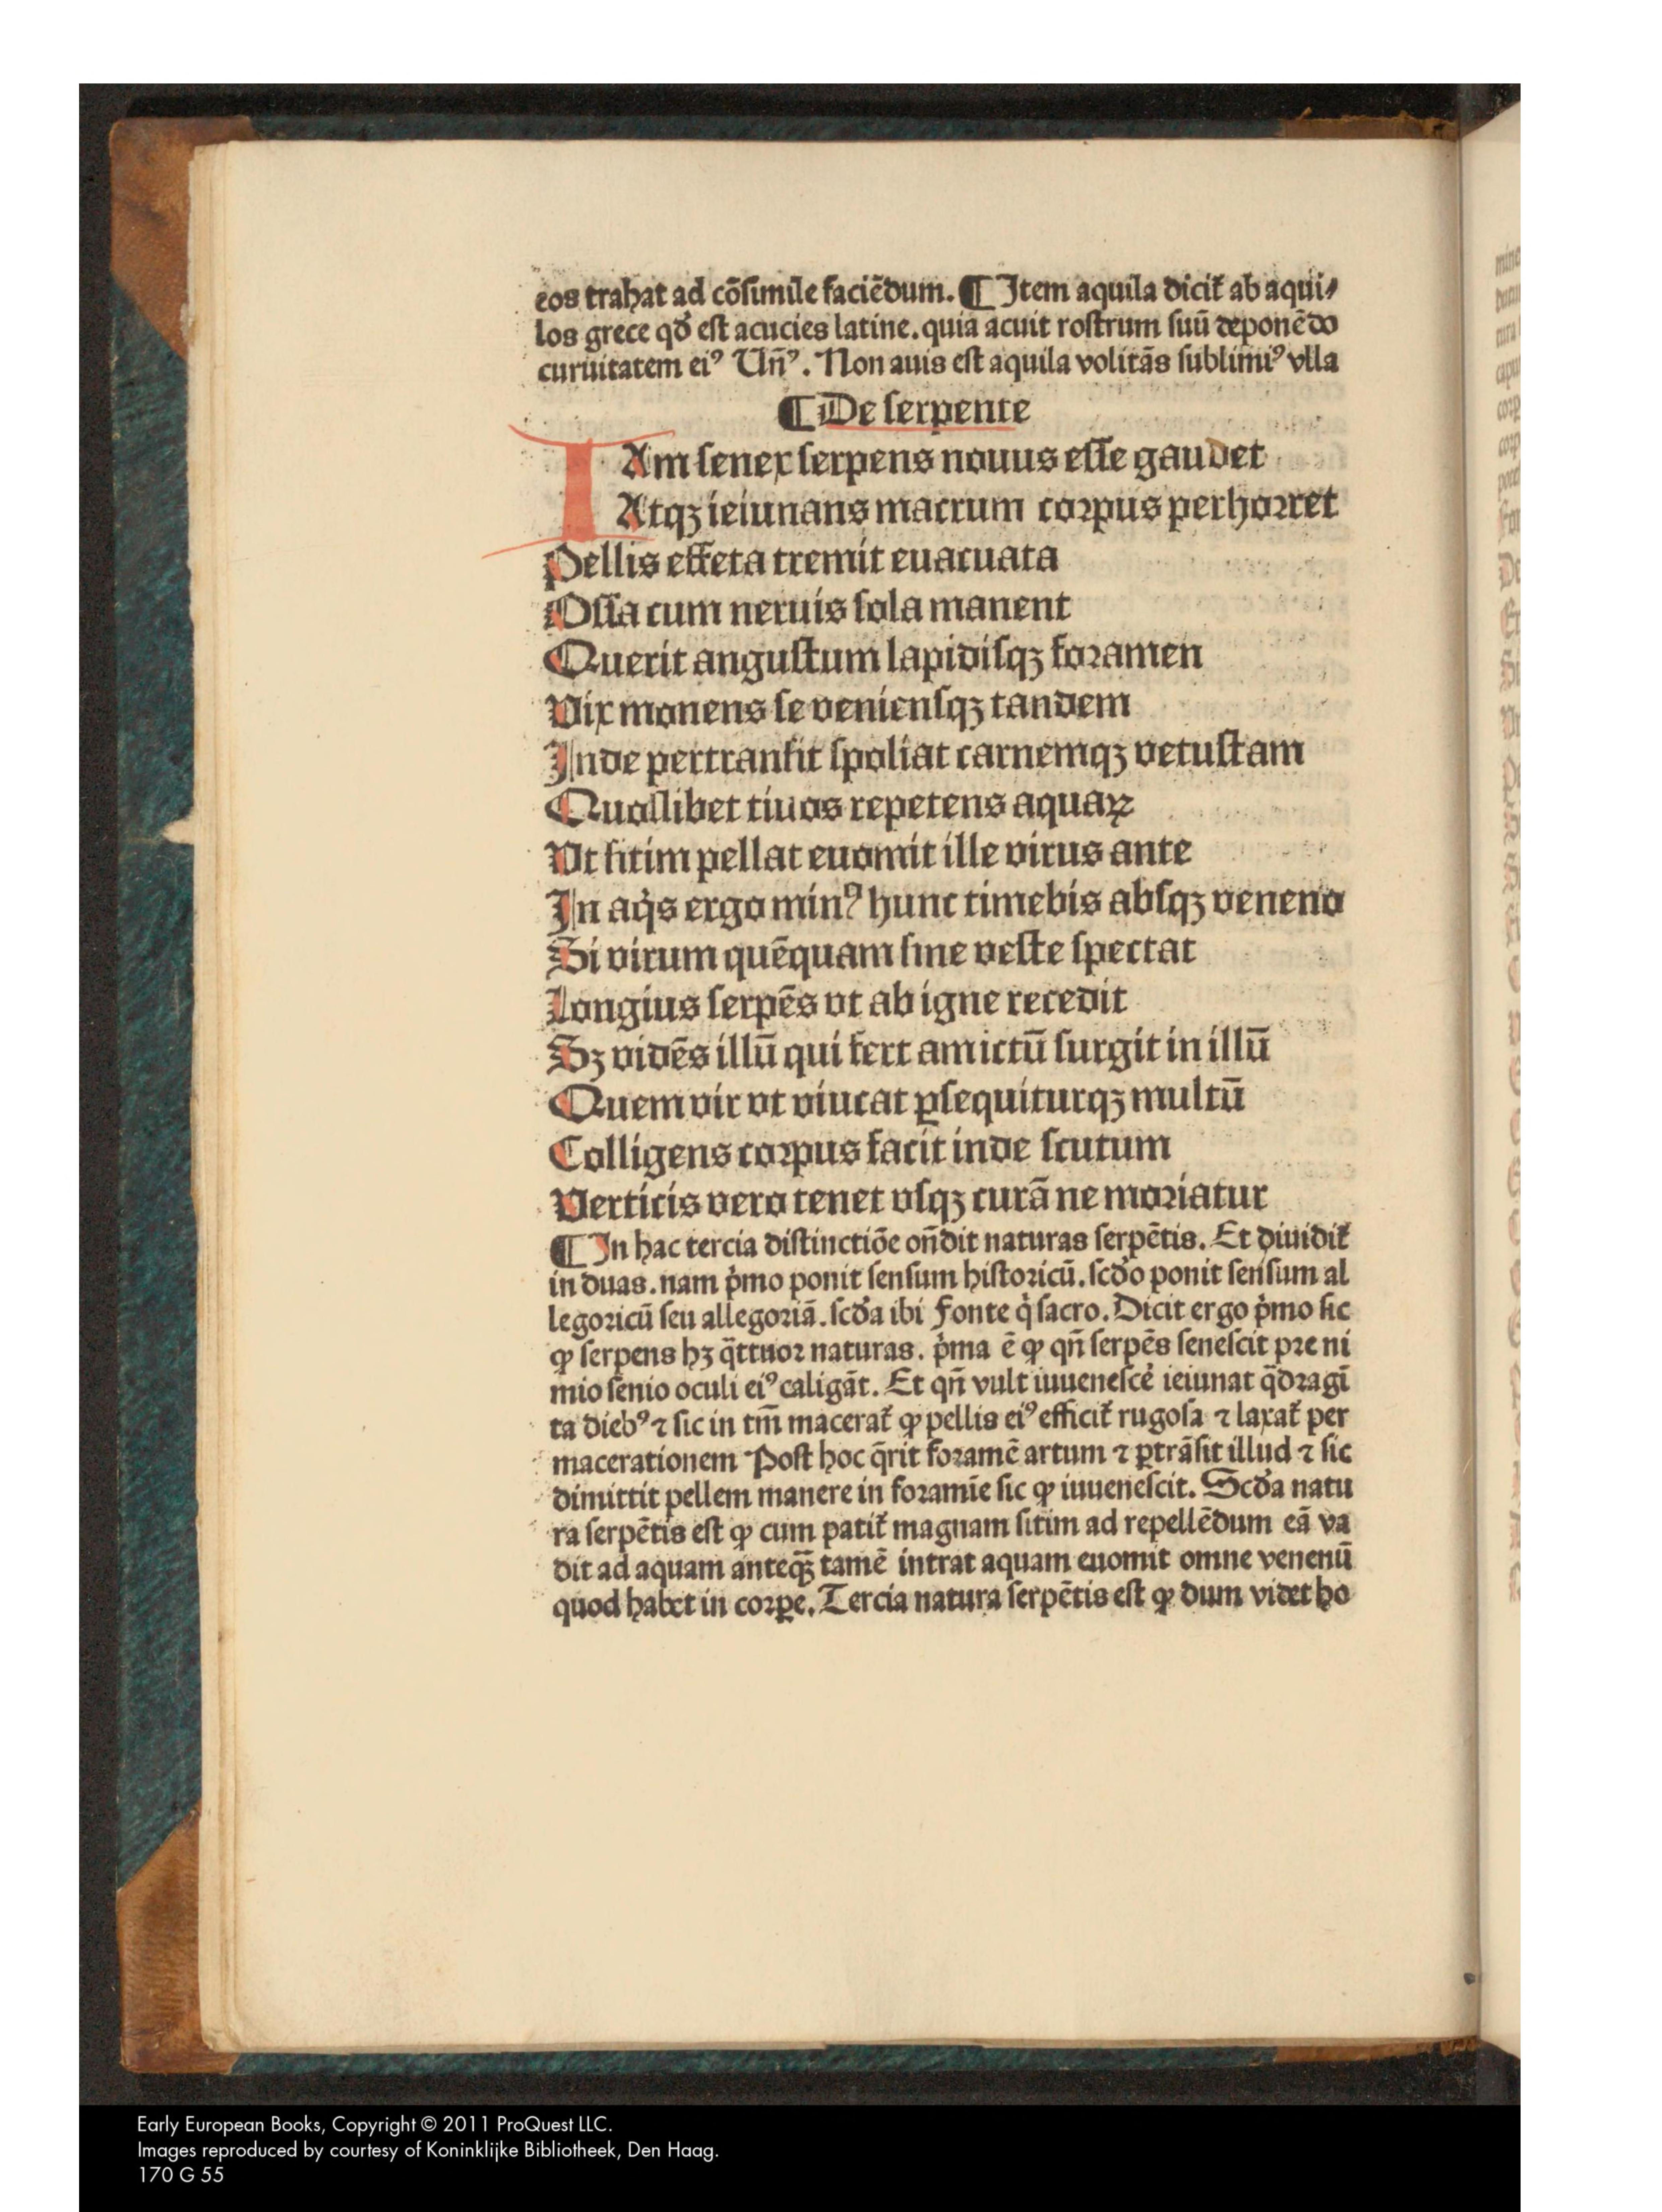 eos trahat ad cõſimile faciẽdum. ¶ Item aquila dicit᷑ ab aqui⸗
los grece qď eſt acucies latine. quia acuit roſtrum ſuũ deponẽdo
curuitatem eiꝰ Un̄ꝰ. Non auis eſt aquila volitãs ſublimiꝰ vlla
¶ De ſerpente
IAm ſenex ſerpens nouus eſſe gaudet
Atqꝫ ieiunans macrum corpus perhorret
Pellis effeta tremit euacuata
Oſſa cum neruis ſola manent
Querit anguſtum lapidiſqꝫ foramen
Vix monens ſe venienſqꝫ tandem
Inde pertranſit ſpoliat carnemqꝫ vetuſtam
Quoſlibet riuos repetens aquaꝝ
Vt ſitim pellat euomit ille virus ante
In aq̇s ergo minꝰ hunc timebis abſqꝫ veneno
Si virum quẽquam ſine veſte ſpectat
Longius ſerpẽs vt ab igne recedit
Sꝫ vidẽs illũ qui fert amictũ ſurgit in illũ
Quem vir vt viucat ꝑſequiturqꝫ multũ
Colligens corpus facit inde ſcutum
Verticis vero tenet vſqꝫ curã ne moriatur
¶ In hac tercia diſtinctiõe on̄dit naturas ſerpẽtis. Et diuidit᷑
in duas. nam ṗmo ponit ſenſum hiſtoricũ. ſcďo ponit ſenſum al
legoricũ ſeu allegoriã. ſcďa ibi Fonte q̇ ſacro. Dicit ergo ṗmo ſic
ꝙ ſerpens hꝫ q̈ttuor naturas. ṗma ẽ ꝙ qn̄ ſerpẽs ſeneſcit pre ni
mio ſenio oculi eiꝰ caligãt. Et qn̄ vult iuueneſce᷑ ieiunat q̈dragĩ
ta diebꝰ ⁊ ſic in tm̄ macerat᷑ ꝙ pellis eiꝰ efficit᷑ rugoſa ⁊ laxat᷑ per
macerationem Poſt hoc q̄rit foramẽ artum ⁊ ꝑtrãſit illud ⁊ ſic
dimittit pellem manere in foramĩe ſic ꝙ iuueneſcit. Scďa natu
ra ſerpẽtis eſt ꝙ cum patit᷑ magnam ſitim ad repellẽdum eã va
dit ad aquam anteqꝫ̄ tamẽ intrat aquam euomit omne venenũ
quod habet in corꝑe. Tercia natura ſerpẽtis eſt ꝙ dum videt ho
Early European Books, Copyright © 2011 ProQuest LLC.
Images reproduced by courtesy of Koninklijke Bibliotheek, Den Haag.
170 G 55